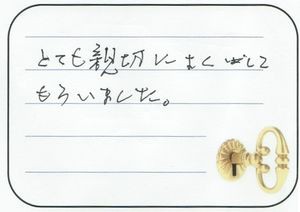 とても親切によくして
もらいました。